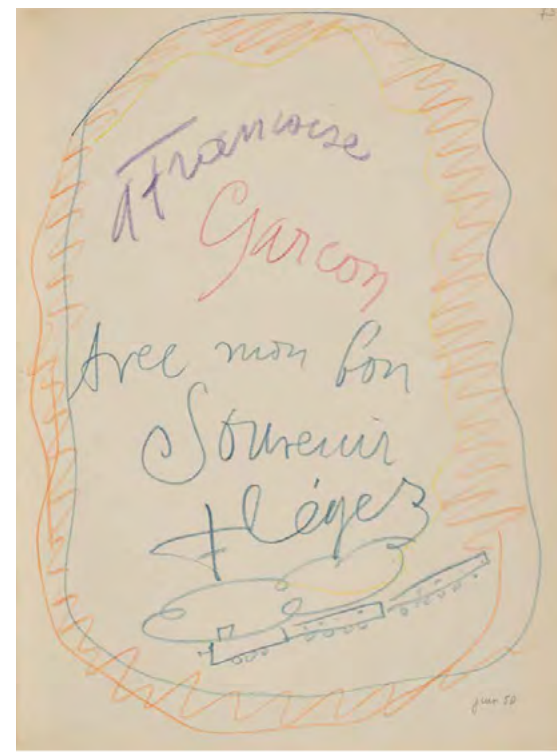 A Françoise
Garçon
Avec mon bon
Souvenir
F Léger
juin 50